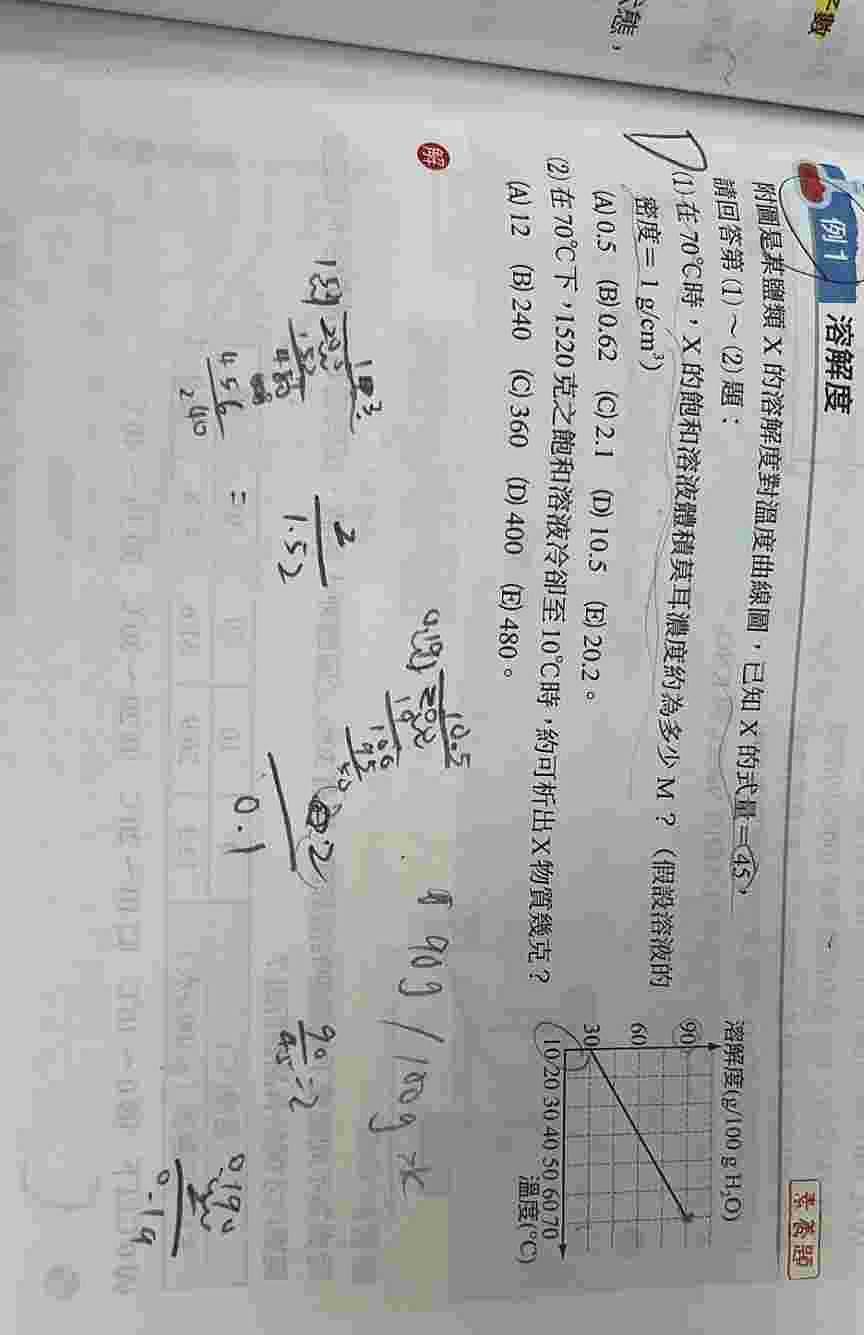 例1 溶解度
素養題
附圖是某鹽類 X 的溶解度對溫度曲線圖，已知 X 的式量=45，
請回答第(1)～(2)題：
(1)在70℃時，X 的飽和溶液體積莫耳濃度約為多少 M？（假設溶液的
密度=1 g/cm³）
(A)0.5 (B)0.62 (C)2.1 (D)10.5 (E)20.2。
(2)在70℃下，1520克之飽和溶液冷卻至10℃時，約可析出X物質幾克？
(A)12 (B)240 (C)360 (D)400 (E)480。
溶解度(g/100 g H₂O)
90
60
30
10 20 30 40 50 60 70
溫度(℃)
解
D
90g / 100g 水
90
45
=2
10.5
2
1.52
=
2
0.1
0.190
0.19
456
240
態，